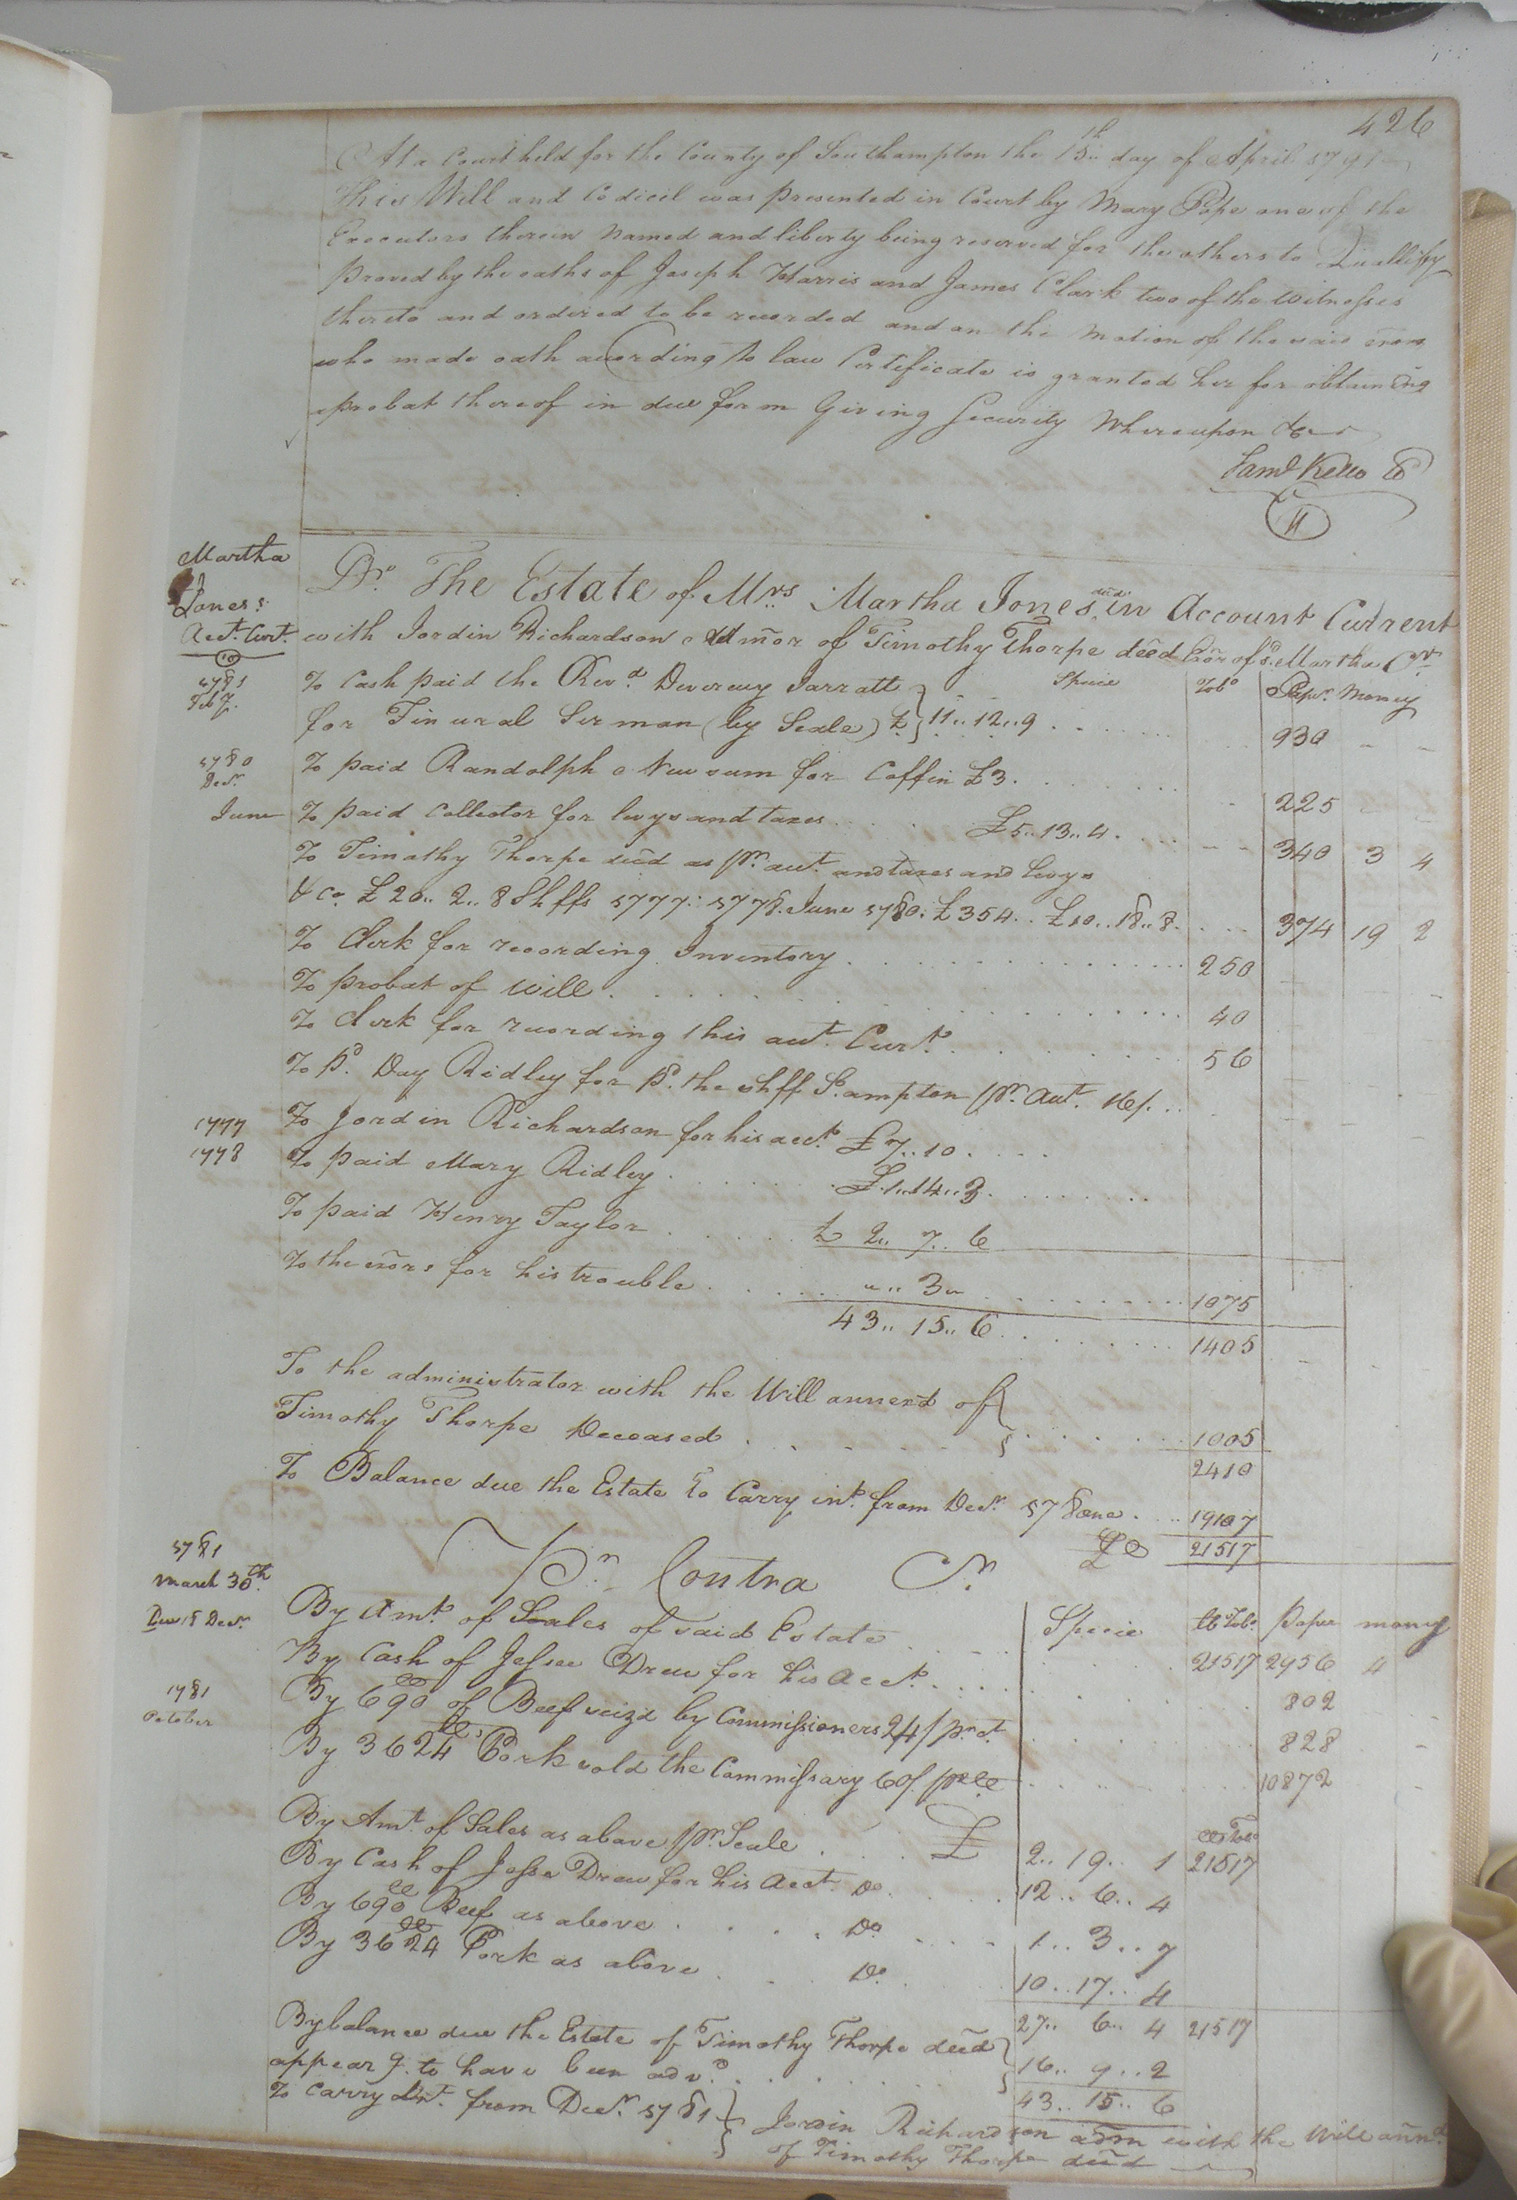 426
At a Court held for the County of Southampton the 15th day of April 1791
This Will and Codicil was presented in Court by Mary Pope one of the
Executors therein Named and liberty being reserved for the others to Quallify
proved by the oaths of Joseph Harris and James Clark two of the Witnesses
thereto and ordered to be recorded and on the Motion of the said exors
who made oath according to law Certificate is granted her for obtaining
probat thereof in due form Giving Security Whereupon &c
Saml Kello
Martha
Jones's
Acct. Curt.
Dr. The Estate of Mrs. Martha Jones decd in Account Current
with Jordin Richardson Admor of Timothy Thorpe decd Exor of sd. Martha Cr
Specie Tobo Paper Money
1781
Feby. To Cash paid the Revd. Deverexy Jarratt
for Funural Sermon (by Scale) £ } 11.. 12.. 9 930 - -
1780
Decr. To paid Randolph Newsum for Coffin £3. 225
June To paid Collector for levys and taxes £5.. 13.. 4. 340 3 4
To Timothy Thorpe decd as pr. acct. and taxes and levys
&co. £20.. 2.. 8 Shffs 1777: 1778. June 1780: £354.. £10.. 18.. 8. 374 19 2
To Clerk for recording Inventory 250
To probat of Will 40
To Clerk for recording this acct. Curt. 56
To pd. Day Ridley for pd. the shff S.ampton pr. Acct. 16/.
To Jordin Richardson for his acct. £7.. 10.
1777
1778 To paid Mary Ridley £.1..14..3.
To paid Henry Taylor £ 2.. 7.. 6
To the exors for his trouble ".. 3" 1075
43.. 15.. 6 1405
To the administrator with the Will annexd of
Timothy Thorpe Deceased } 1005
2410
To Balance due the Estate to Carry int. from Decr. 1780 19107
21517
Pr. Contra Cr.
Specie lb Tobo. Paper money
1781
March 30th. By Amt. of Sales of said Estate 21517 2956 4
Due 18 Decr. By Cash of Jessee Drew for his Acct. 802
1781
October By 690 lb of Beef seizd by Commissioners 24/ pr. ct. 828 -
By 3624 lbs Pork sold the Commissary 60/. pr lb 10872 -
By Amt. of Sales as above pr. Scale £ 2.. 19.. 1 21517
By Cash of Jesse Drew for his Acct. Do. 12.. 6.. 4
By 690 lb Beef as above Do. 1.. 3.. 7
By 3624 lb Pork as above Do. 10.. 17.. 4
27.. 6.. 4 21517
By balance due the Estate of Timothy Thorpe decd
appearg. to have been advd. } 16.. 9.. 2
43.. 15.. 6
To Carry Int. from Decr. 1781 } Jordin Richardson adm with the Will annd.
of Timothy Thorpe decd